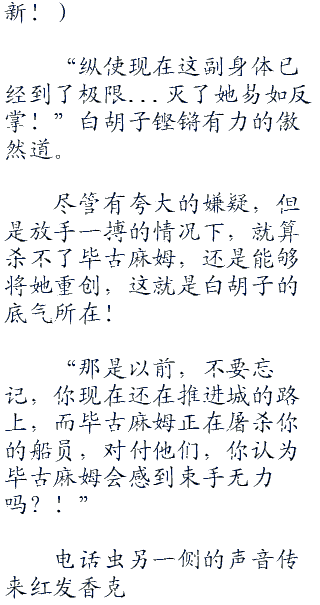 新！）
“纵使现在这副身体已
经到了极限...灭了她易如反
掌！”白胡子铿锵有力的傲
然道。
尽管有夸大的嫌疑，但
是放手一搏的情况下，就算
杀不了毕古麻姆，还是能够
将她重创，这就是白胡子的
底气所在！
“那是以前，不要忘
记，你现在还在推进城的路
上，而毕古麻姆正在屠杀你
的船员，对付他们，你认为
毕古麻姆会感到束手无力
吗？！”
电话虫另一侧的声音传
来红发香克